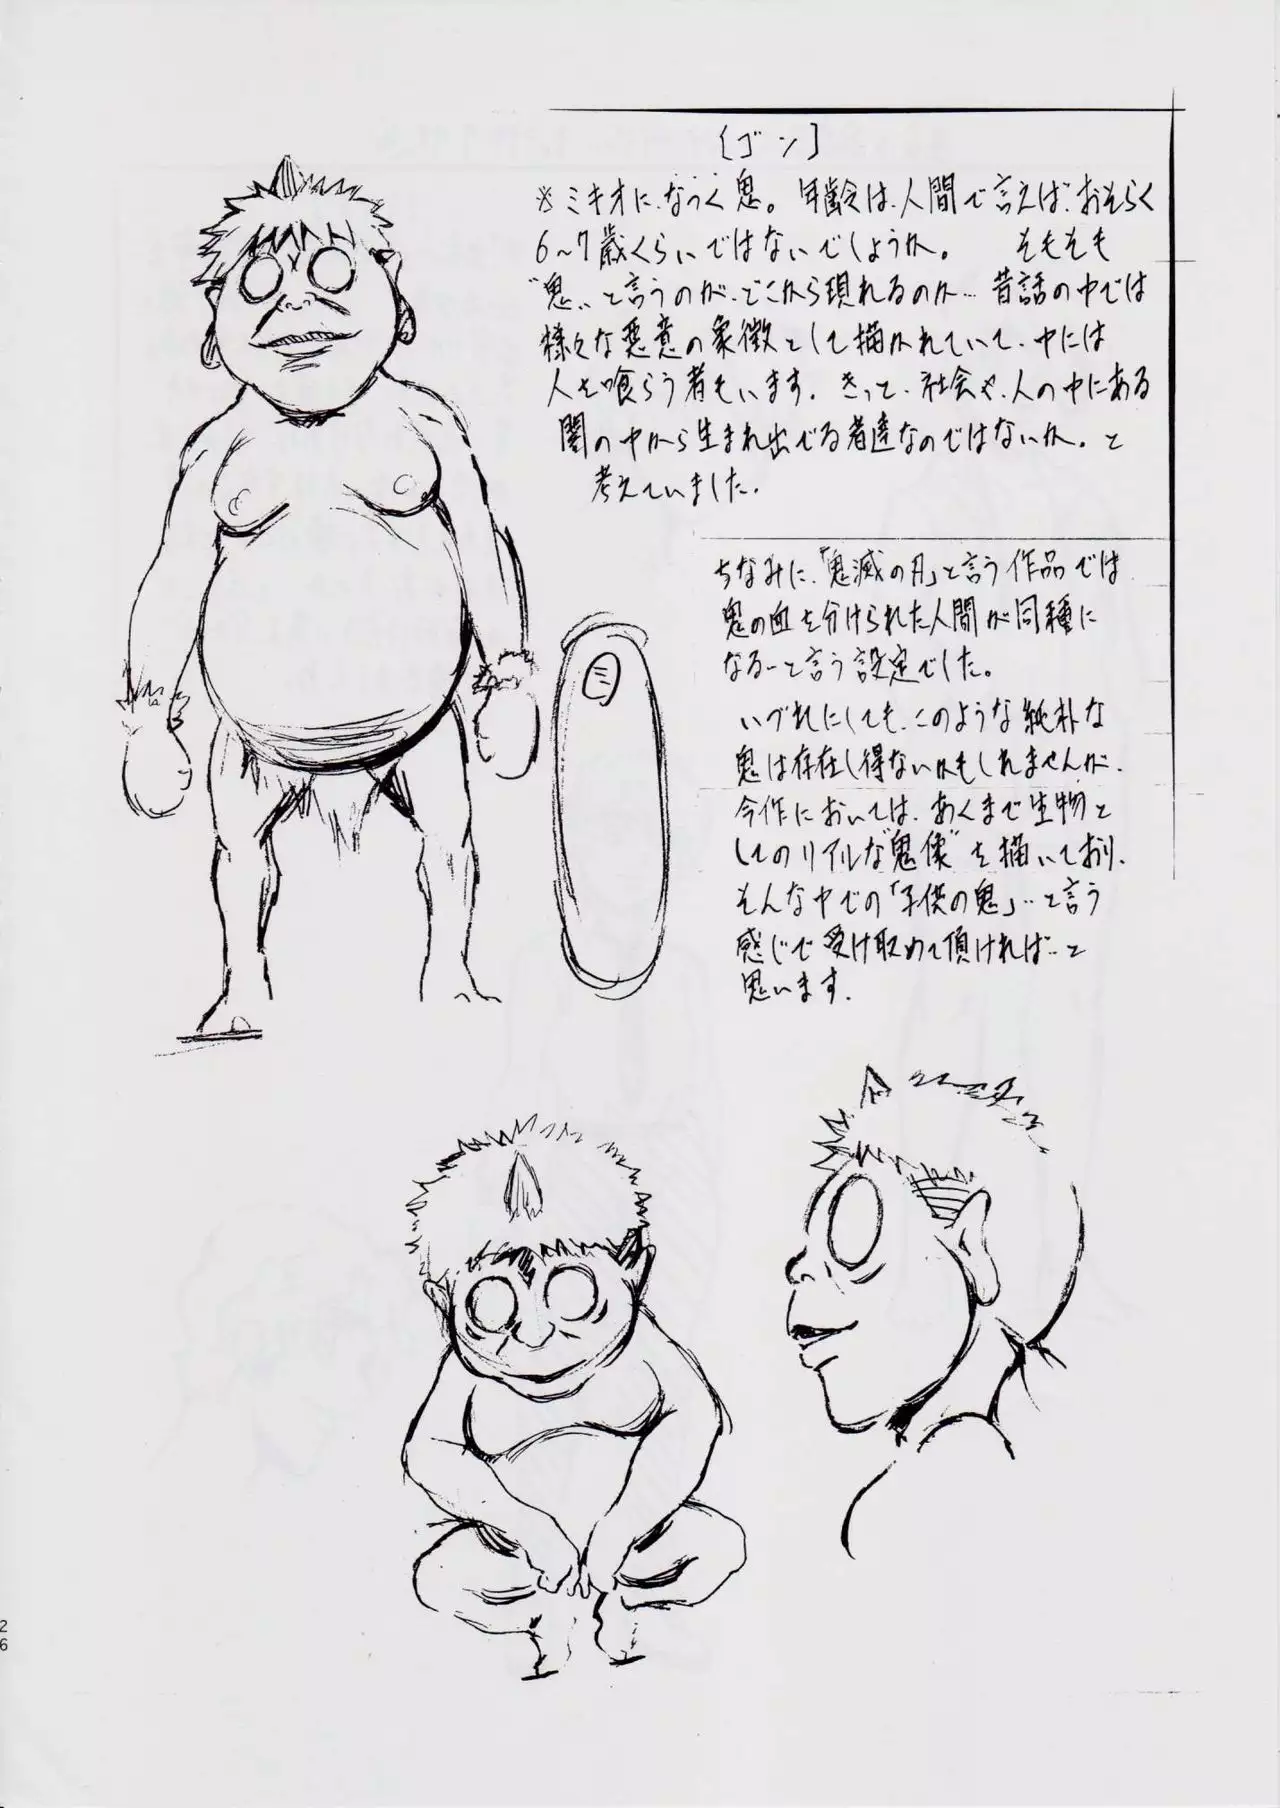 〔ゴン〕
※ミキオに、なつく鬼。年齢は、人間で言えば、おそらく
6～7歳くらいではないでしょうか。 そもそも
"鬼"と言うのが、どこから現れるのか…昔話の中では
様々な悪意の象徴として描かれていて、中には
人を喰らう者もいます。きっと、社会や、人の中にある
闇の中から生まれ出でる者達なのではないか。と
考えていました。
ちなみに、「鬼滅の刃」と言う作品では
鬼の血を分けられた人間が同種に
なる…と言う設定でした。
いづれにしても、このような純朴な
鬼は存在し得ないかもしれませんが、
今作においては、あくまで生物と
してのリアルな"鬼像"を描いており、
そんな中での「子供の鬼」…と言う
感じで受け取めて頂ければ…と
思います。
26